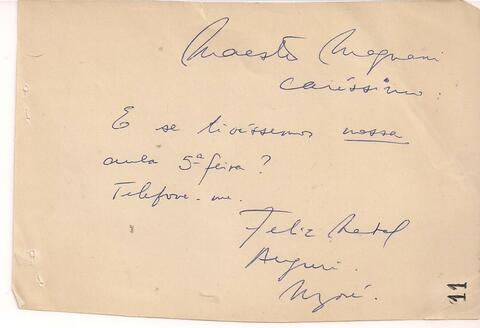 Maestro Magnani
caríssimo:
E se tivéssemos nossa
aula 5ª feira?
Telefone-me.
Feliz Natal
Auguri.
11